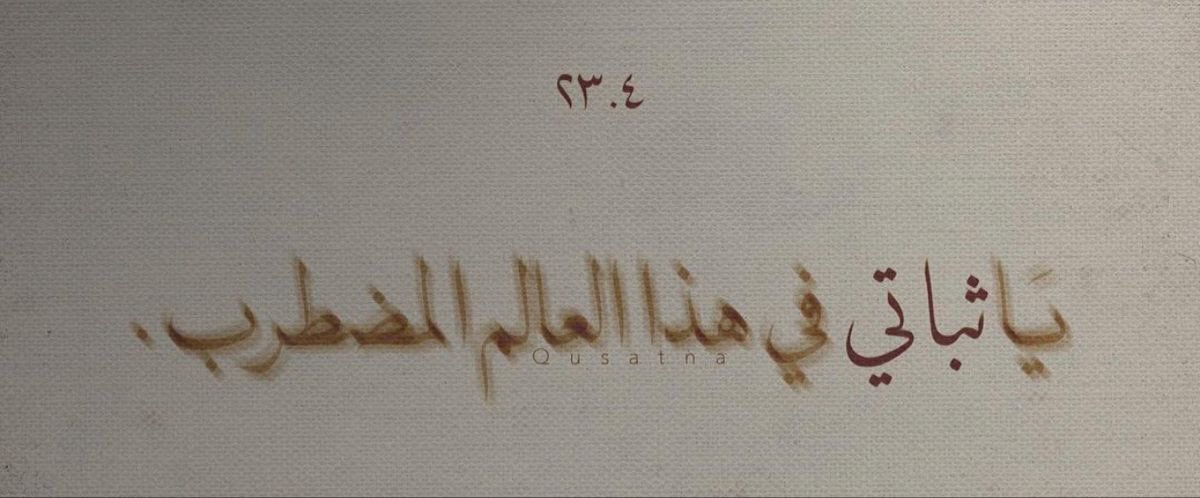 ٢٣.٤
يَا ثباتي في هذا العالم المضطرب.
Qusatna